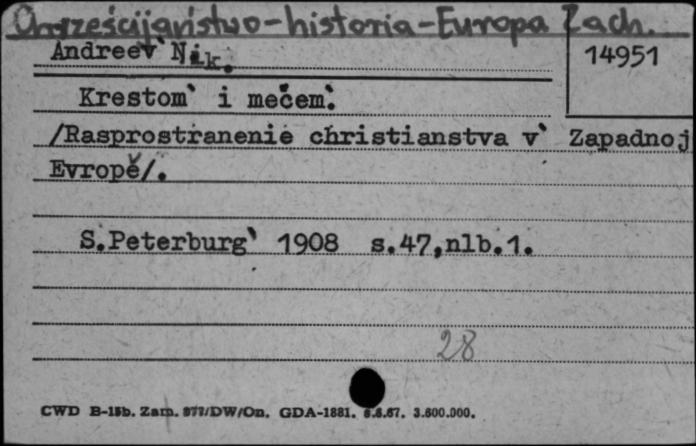 Chrześcijaństwo-historia-Europa Zach.
Andreev` Nik. 14951
Krestom` i mečem`.
/Rasprostranenie christianstva v` Zapadnoj
Evropě/.
S.Peterburg` 1908 s.47,nlb.1.
28
CWD B-15b. Zam. 877/DW/On. GDA-1881. 6.6.67. 3.600.000.